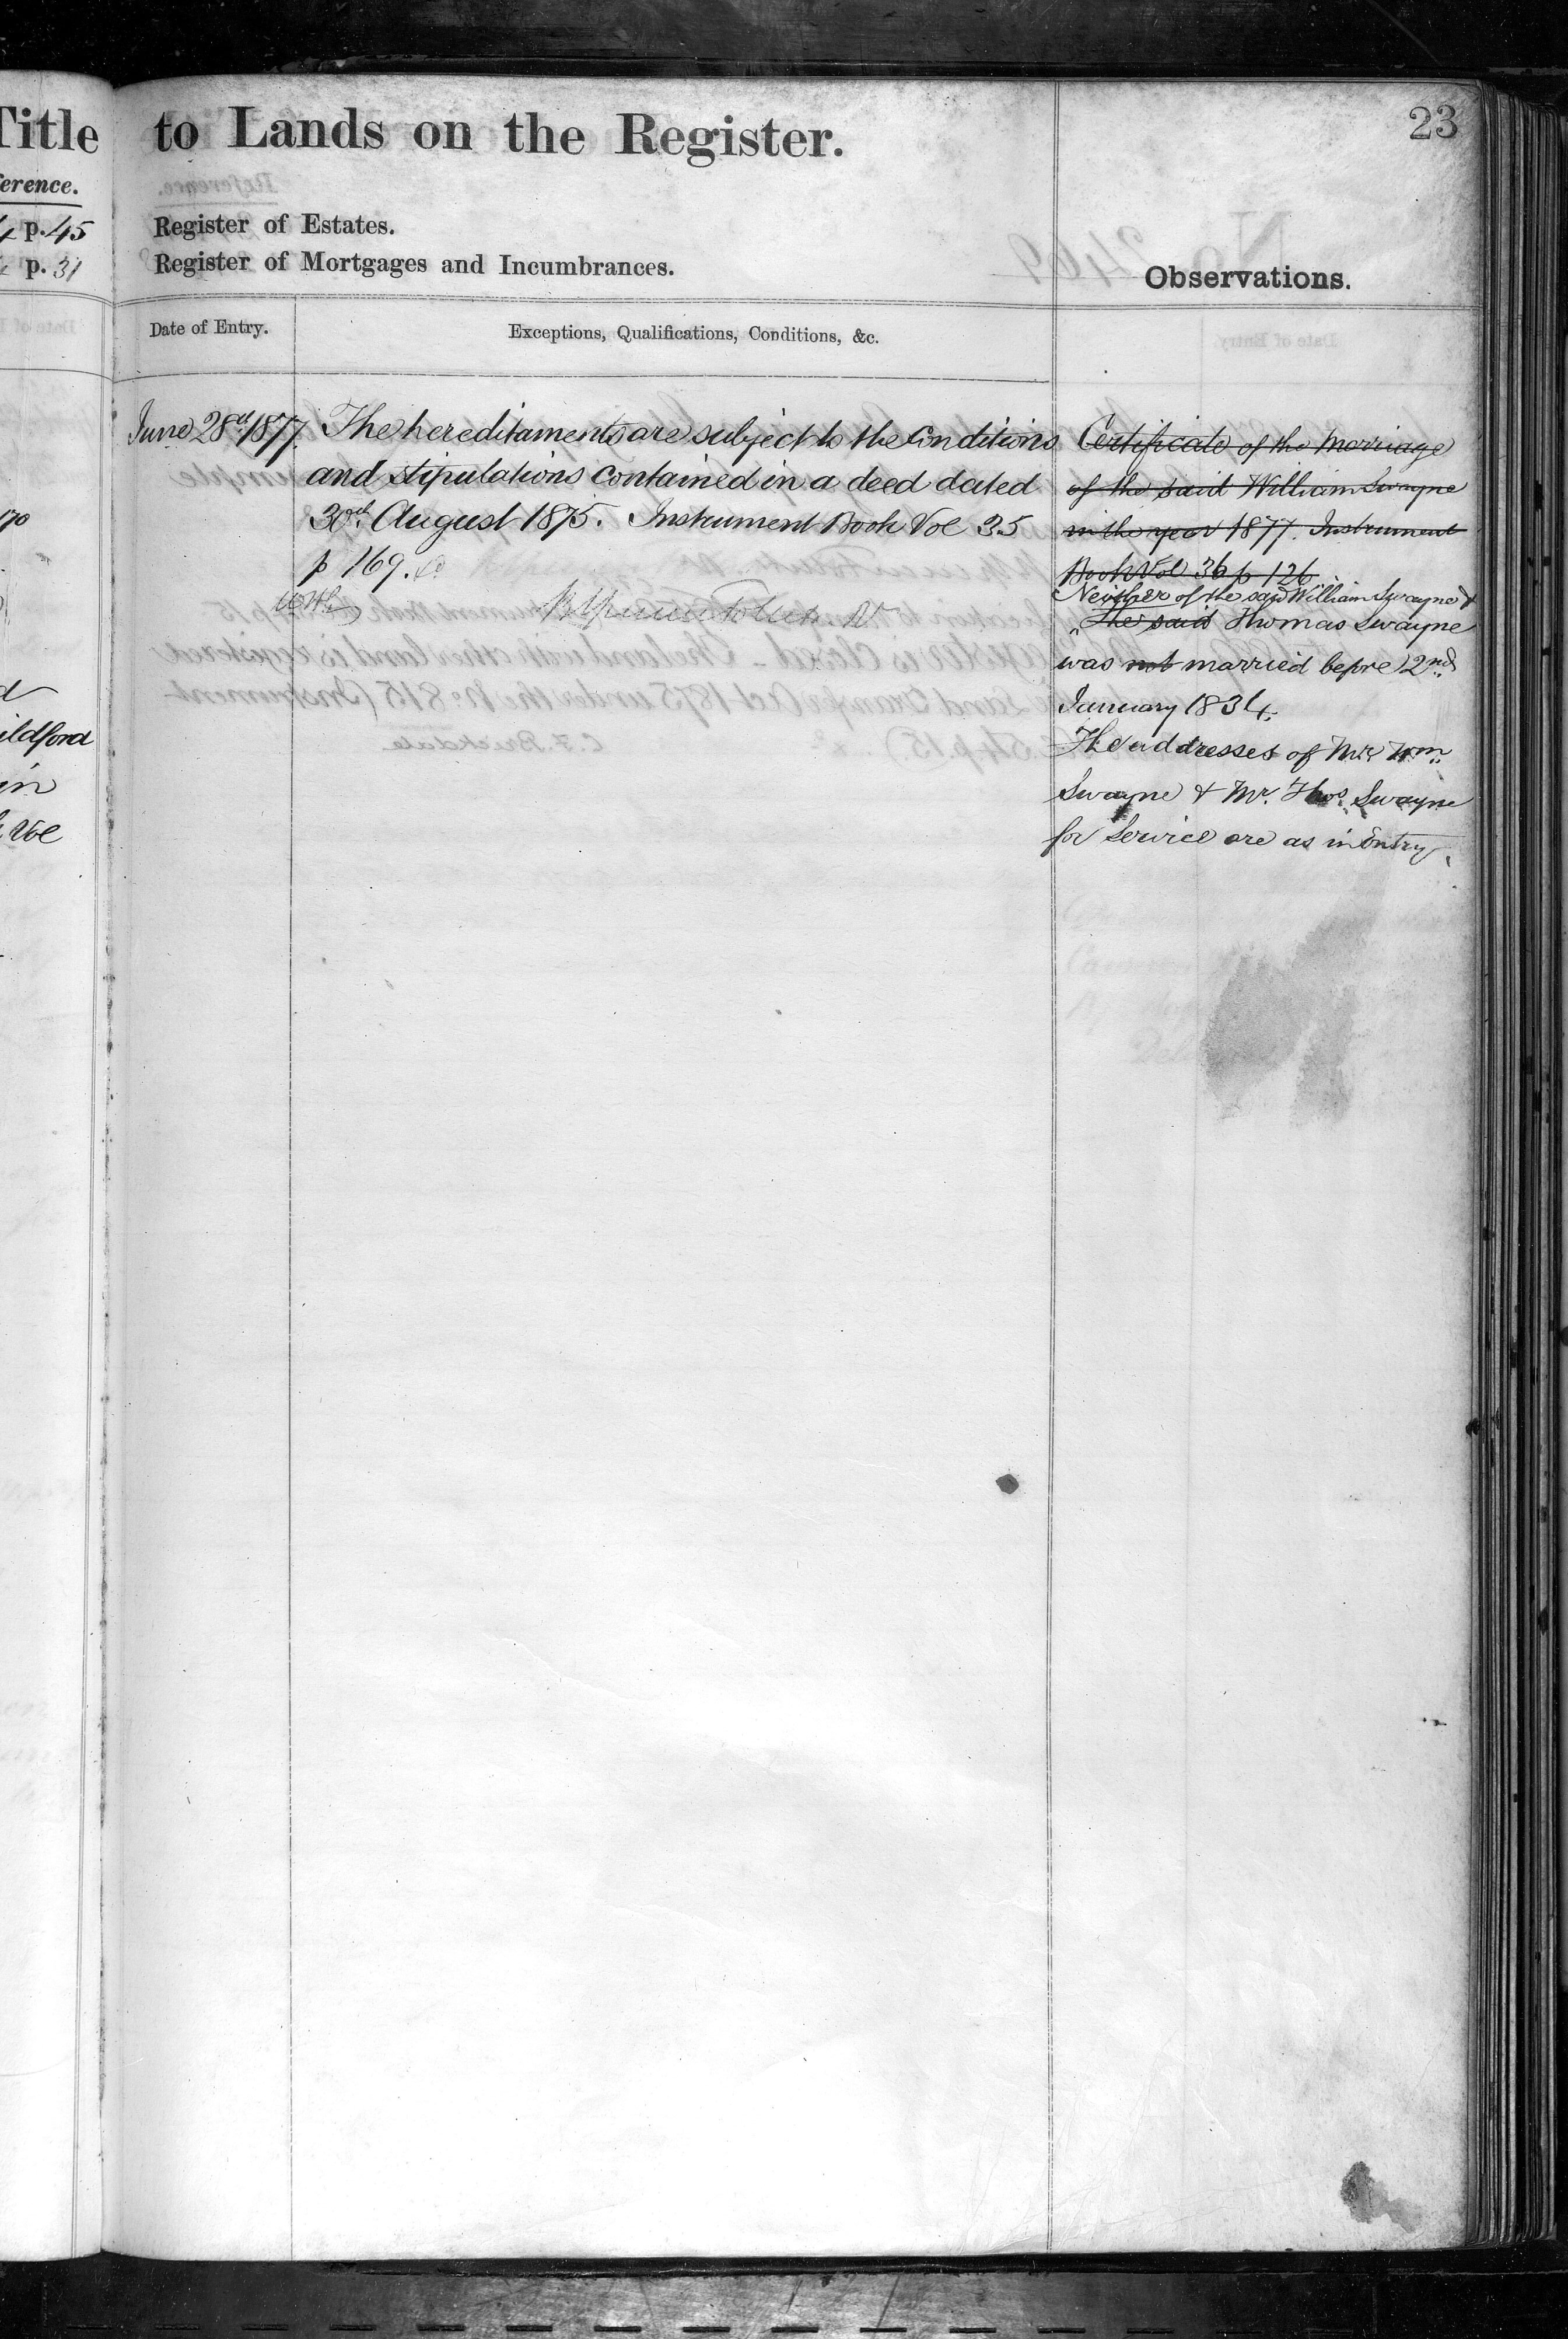 Title
ference.
p. 45
p. 31
170
d
ildford
in
Vol
to Lands on the Register.
23
Register of Estates.
Register of Mortgages and Incumbrances.
Observations.
Date of Entry.
Exceptions, Qualifications, Conditions, &c.
June 28th 1877
The hereditaments are subject to the Conditions
and stipulations contained in a deed dated
30th August 1875. Instrument Book Vol 35
p 169.
Certificate of the Marriage
of the said William Swayne
in the year 1877. Instrument
Book Vol 36 p 126
Neither of the said William Swayne &
The said Thomas Swayne
was not married before 2nd
January 1834.
The addresses of Mr Wm
Swayne & Mr. Thos Swayne
for Service are as in Entry.